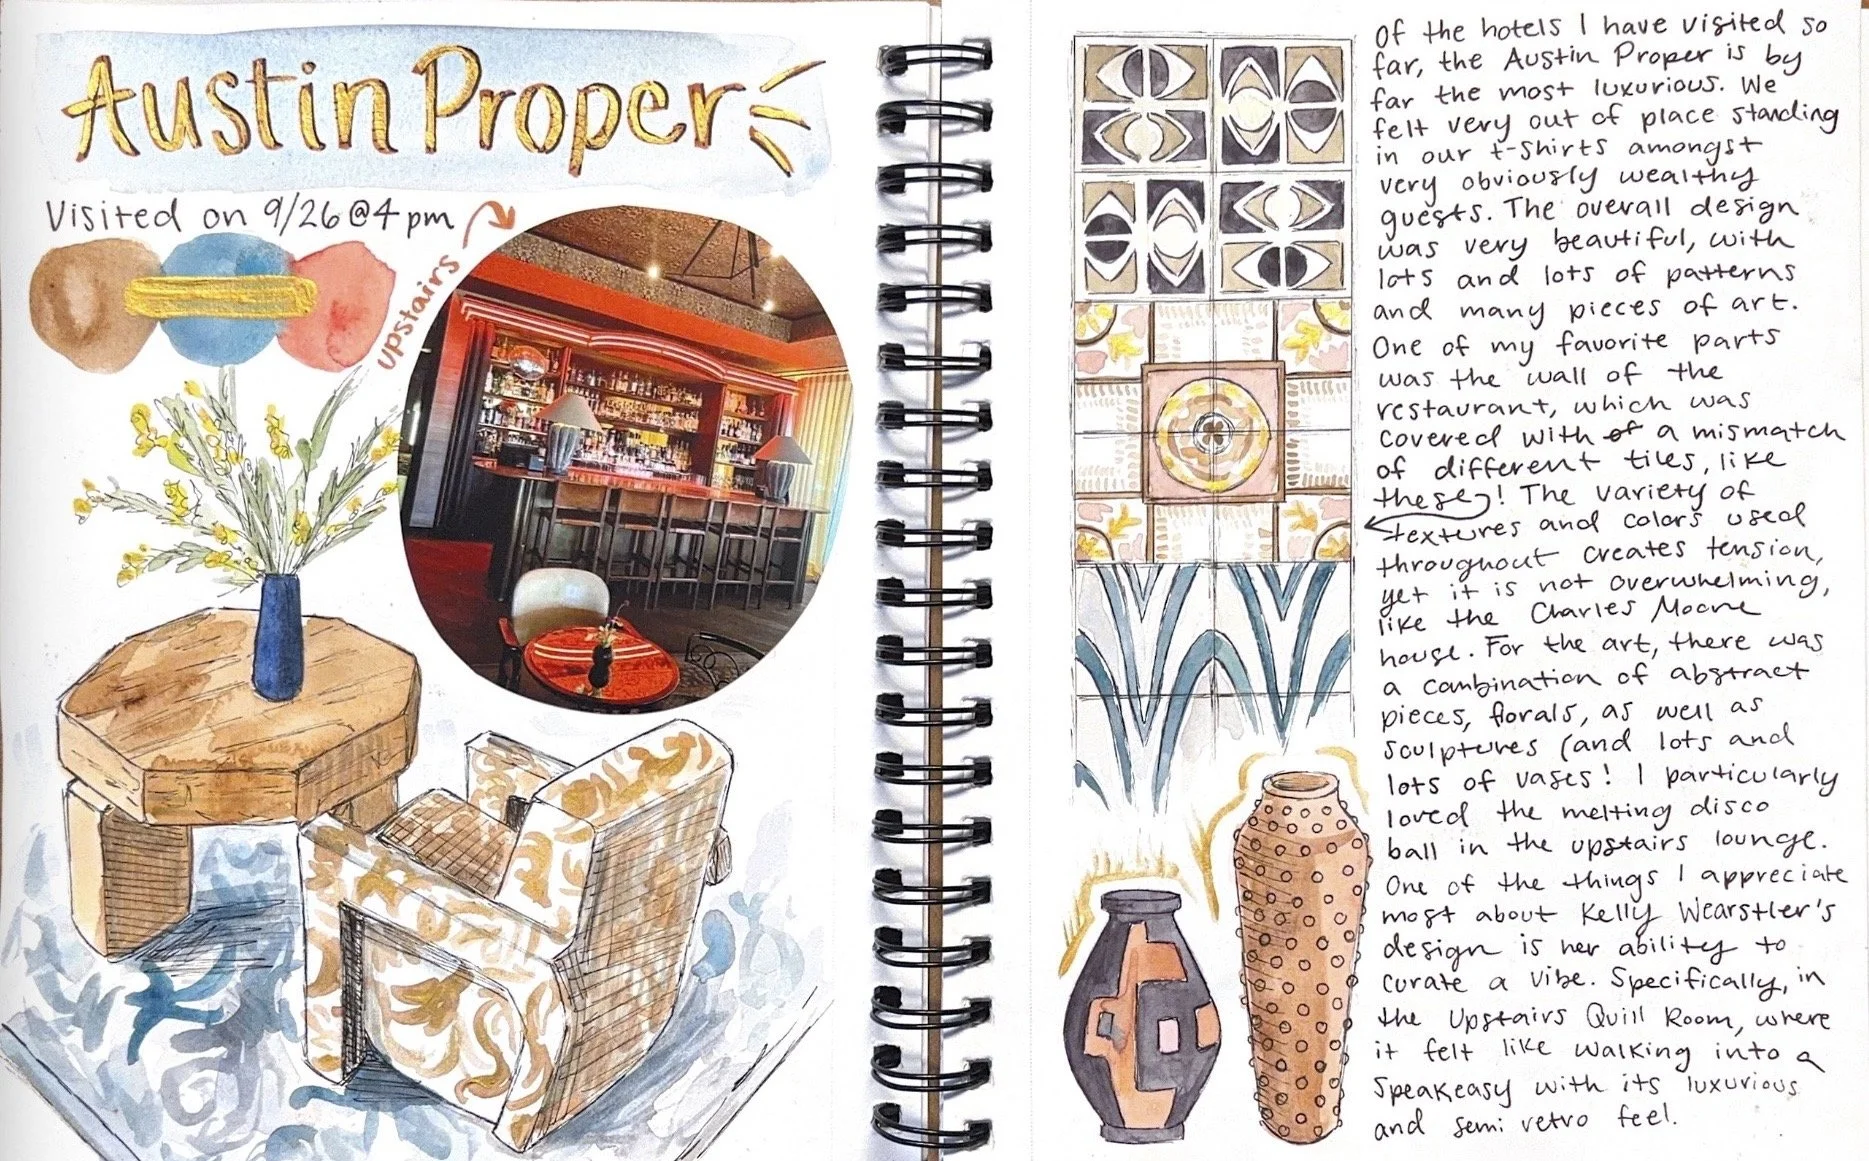 Austin Proper
Visited on 9/26 @ 4 pm
upstairs
Of the hotels I have visited so
far, the Austin Proper is by
far the most luxurious. We
felt very out of place standing
in our t-shirts amongst
very obviously wealthy
guests. The overall design
was very beautiful, with
lots and lots of patterns
and many pieces of art.
One of my favorite parts
was the wall of the
restaurant, which was
covered with of a mismatch
of different tiles, like
these! The variety of
textures and colors used
throughout creates tension,
yet it is not overwhelming,
like the Charles Moore
house. For the art, there was
a combination of abstract
pieces, florals, as well as
sculptures (and lots and
lots of vases! I particularly
loved the melting disco
ball in the upstairs lounge.
One of the things I appreciate
most about Kelly Wearstler's
design is her ability to
curate a vibe. Specifically, in
the Upstairs Quill Room, where
it felt like walking into a
speakeasy with its luxurious
and semi retro feel.